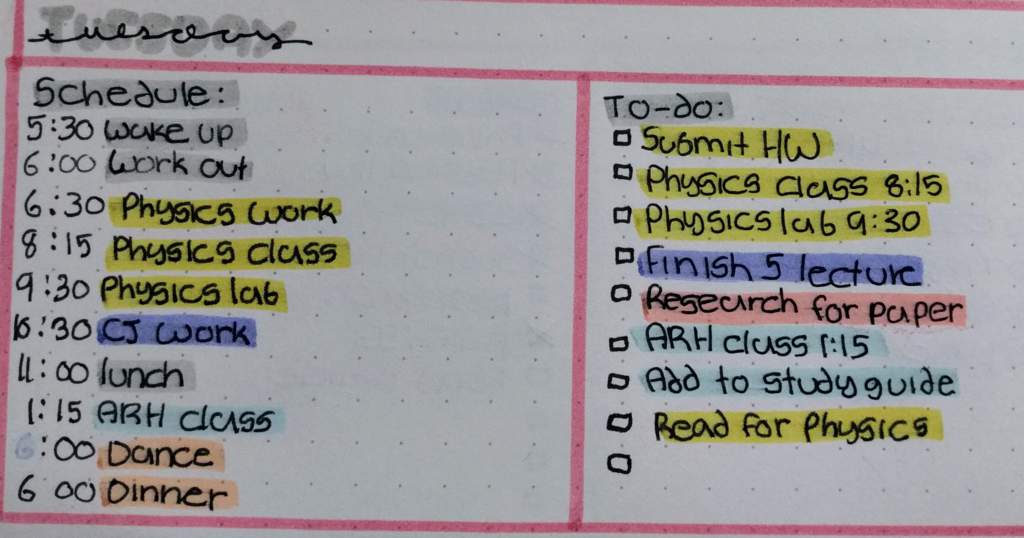 TUESDAY
tuesday
Schedule:
5:30 wake up
6:00 work out
6:30 Physics work
8:15 Physics class
9:30 Physics lab
10:30 CJ work
11:00 lunch
1:15 ARH class
:00 Dance
6 00 Dinner
To-do:
Submit HW
Physics class 8:15
Physics lab 9:30
Finish 5 lecture
Research for paper
ARH class 1:15
Add to study guide
Read for Physics